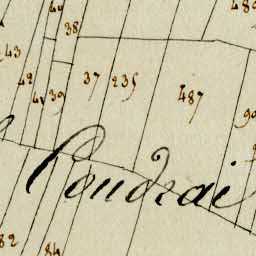 40 38 48
43 42 41 39 37 235 487 90
Coudrai
82 84